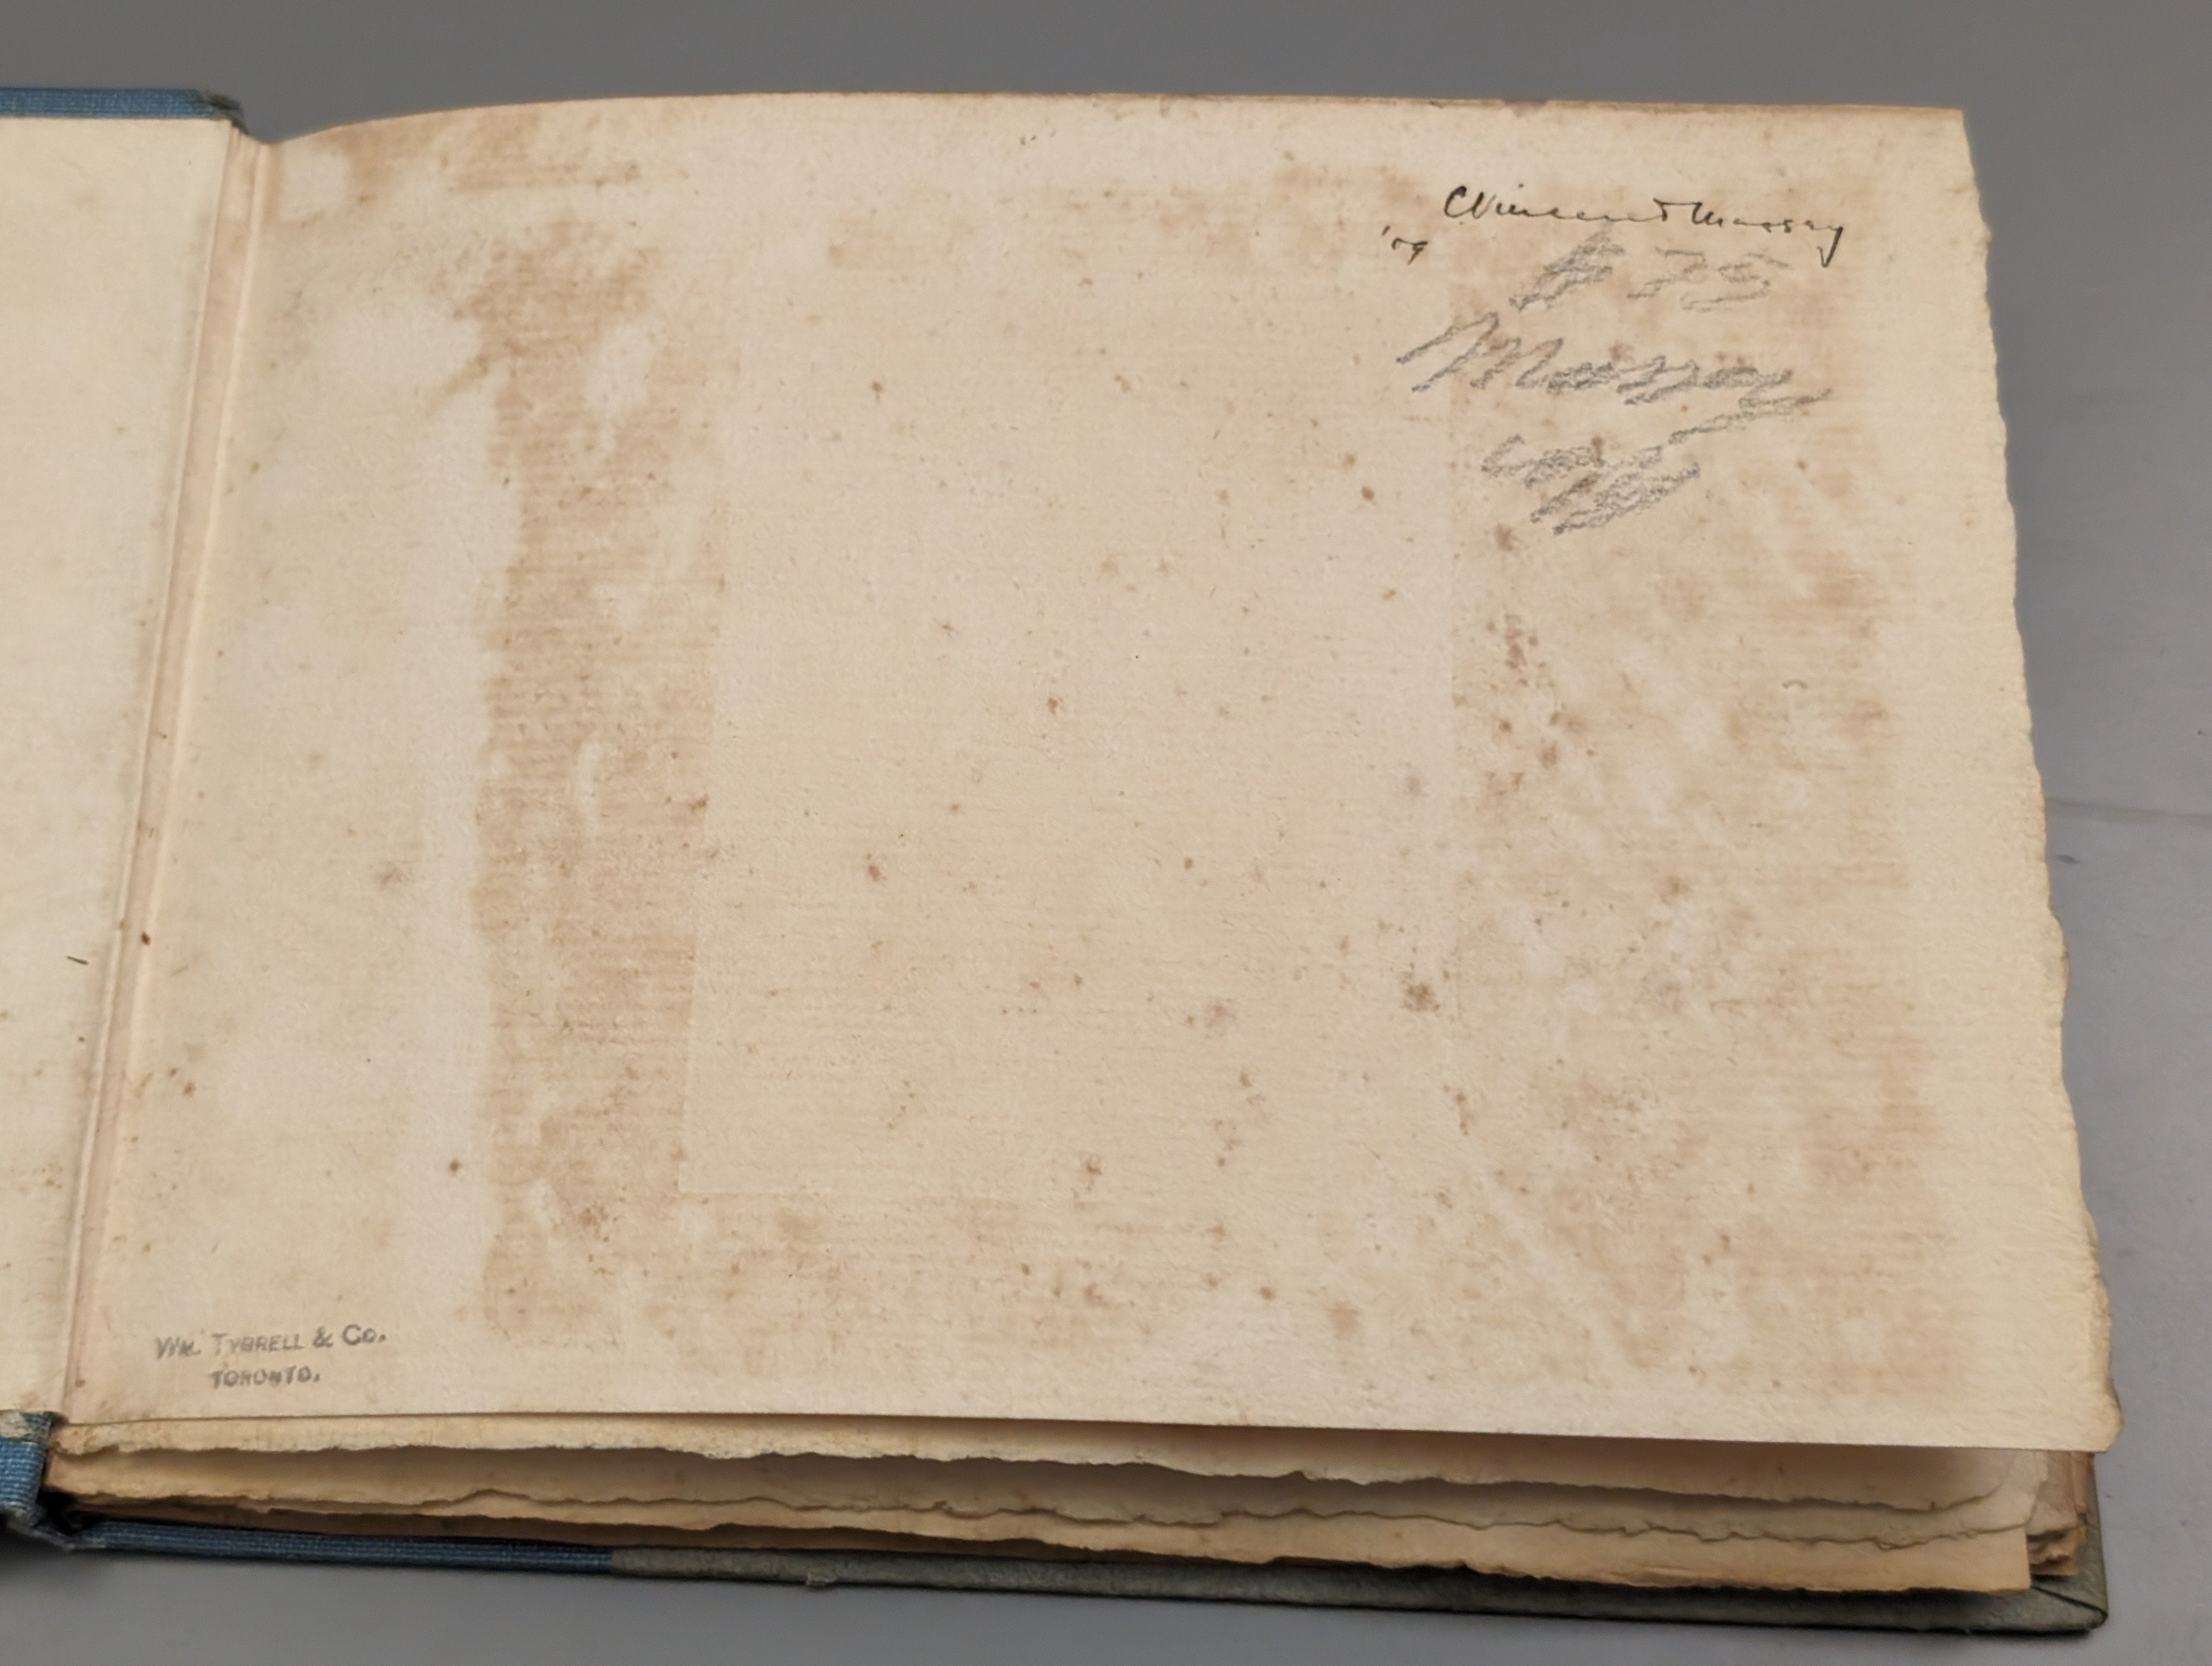 CVincent Massey
'09
$75
Massey
copy
WM. TYRRELL & CO.
TORONTO.